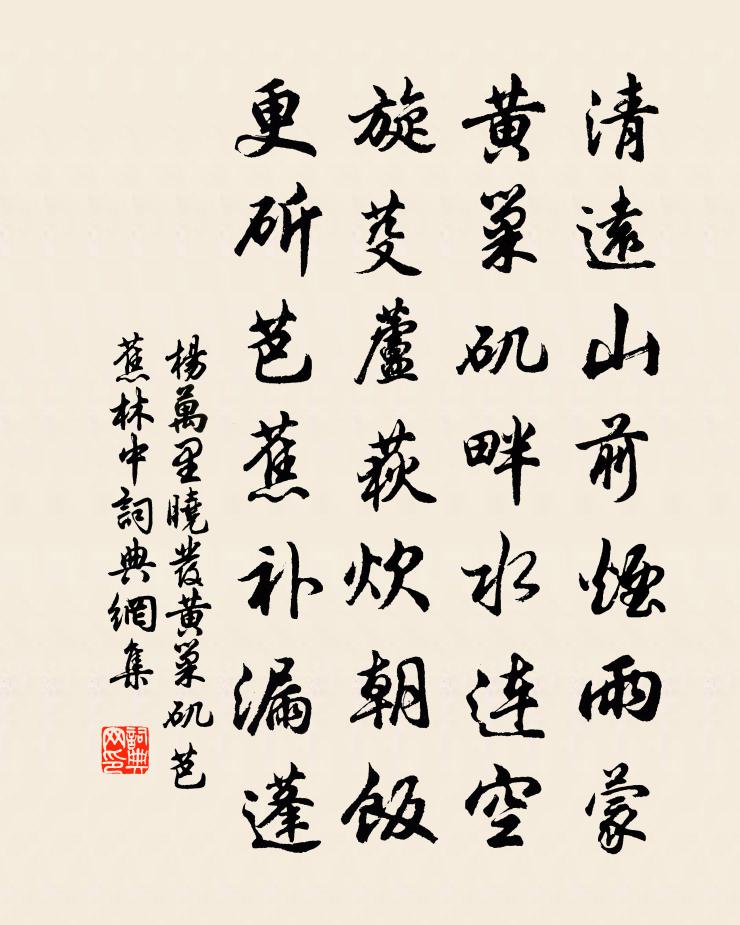 清遠山前煙雨蒙
黃巢矶畔水連空
旋芟蘆荻炊朝飯
更斫芭蕉补漏蓬
楊萬里曉發黃巢矶芭
蕉林中詞典網集
詞典网印